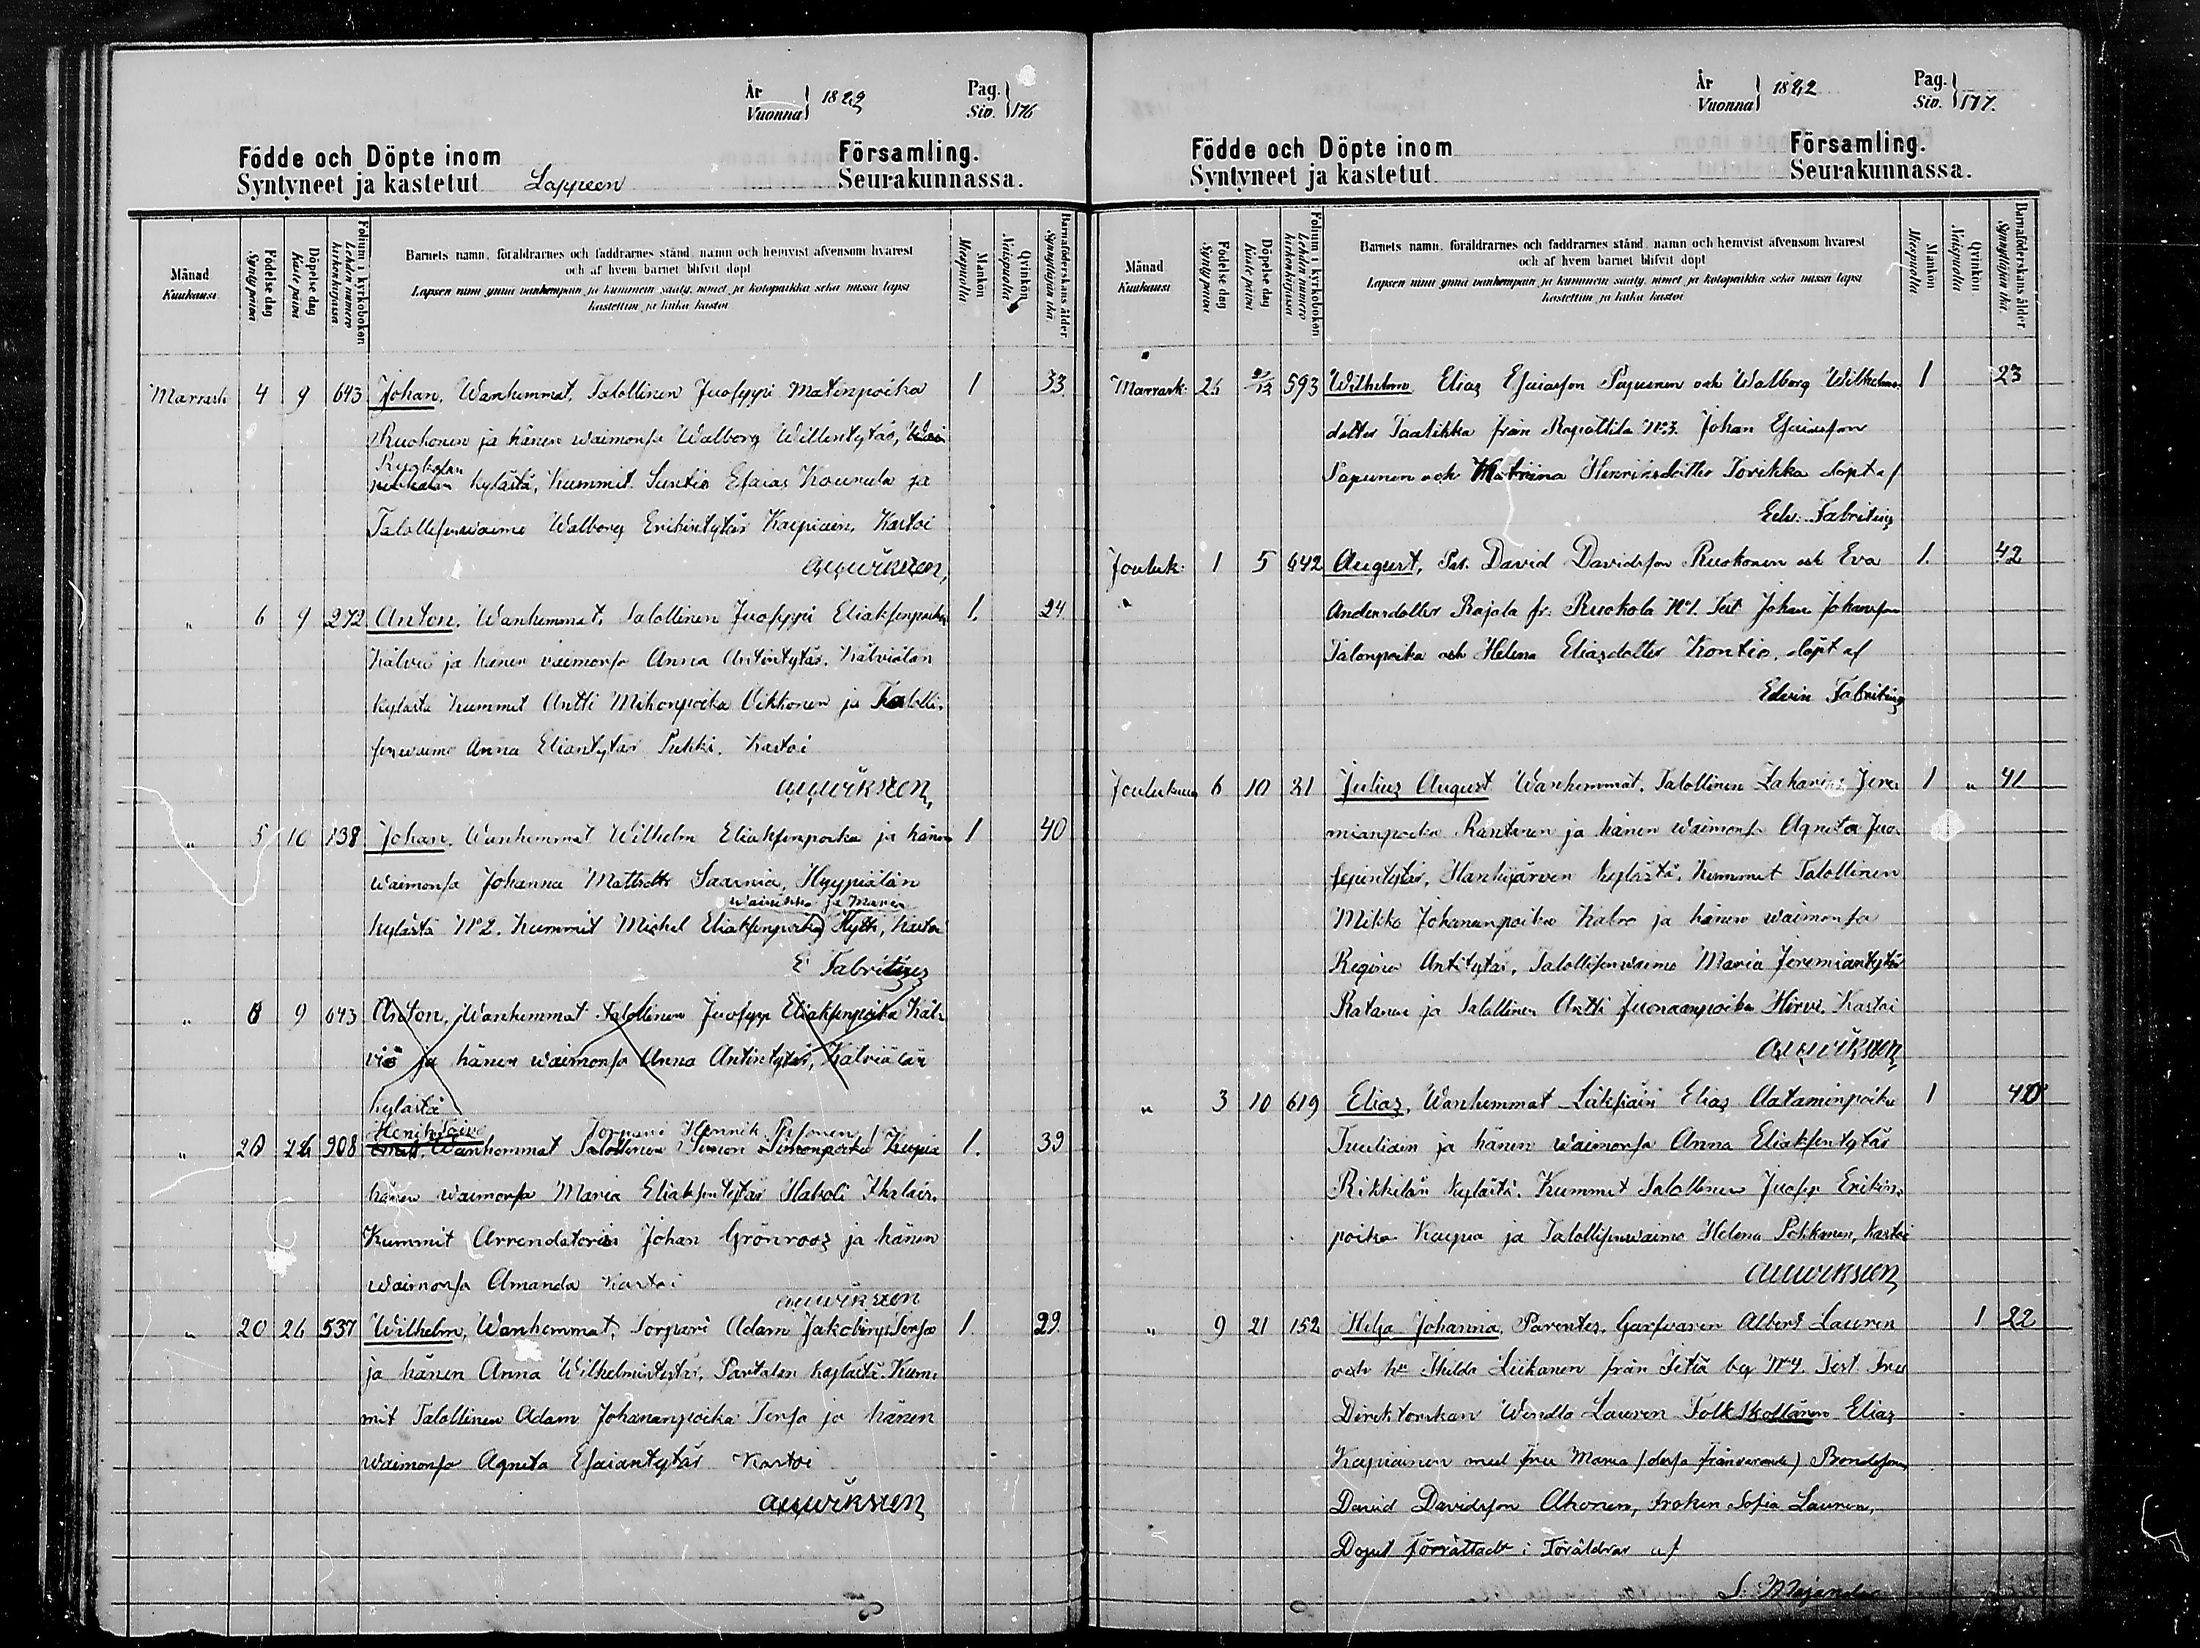 År Vuonna } 1882 Pag. Siv. } 176
Födde och Döpte inom Församling.
Syntyneet ja kastetut Lappeen Seurakunnassa.
Månad Kuukausi
Födelse dag Synty päivä
Döpelse dag Kaste päivä
Folium i kyrkoboken Lehden numero kirkonkirjassa
Barnets namn, föräldrarnes och faddrarnes stånd, namn och hemvist äfvensom hvarest
och af hvem barnet blifvit döpt
Lapsen nimi ynnä vanhempain ja kummein sääty, nimet ja kotopaikka sekä missä lapsi
kastettiin ja kuka kastoi
Mankön Miespuolia
Qvinkön Naispuolia
Barnaföderskans ålder Synnyttäjän ikä
Marrask 4 9 643 Johan, Wanhemmat, Talollinen Juoseppi Matinpoika 1 33
Ruokonen ja hänen waimonsa Walborg Willentytär,
Ruokolan
kylästä, Kummit Suntio Esaias Kounula ja
Talollisenwaimo Walborg Erikintytär Kaipiain, Kastoi
AWiksten
" 6 9 272 Anton, Wanhemmat, Talollinen Juoseppi Eliaksenpoika 1. 24
Kälviä ja hänen vaimonsa Anna Antintytär, Kälviälän
kylästä Kummit Antti Mikonpoika Oikkonen ja Talolli-
senwaimo Anna Eliantytär Pukki. Kastoi
AWiksten
" 5 10 138 Johan, Wanhemmat Wilhelm Eliaksenpoika ja hänen 1 40
waimonsa Johanna Mattsdttr Saarnia, Hyypiälän
waimonsa ja Maria
kylästä No 2. Kummit Michel Eliaksenpoika Hyth, Kastoi
E Fabritius
" 6 9 643 Anton, Wanhemmat Talollinen Juosepp Eliaksenpoika Käl-
viä ja hänen waimonsa Anna Antintytär, Kälviälän
kylästä
Torppari Henrik
" 20 26 908 Wanhemmat Talollinen Simon Simonpoika 1. 39
hänen waimonsa Maria Eliaksentytär Hakoli Ihalais.
Kummit Arrendatorin Johan Grönroos ja hänen
waimonsa Amanda Kastoi
AWiksten
" 20 26 537 Wilhelm, Wanhemmat, Torpari Adam Jakobinp. Tersa 1. 29
ja hänen Anna Wilhelmintytär, Partalan kylästä. Kum-
mit Talollinen Adam Johananpoika Tersa ja hänen
waimonsa Agneta Esaiantytär Kastoi
AWiksten
År Vuonna } 1882 Pag. Siv. } 177.
Födde och Döpte inom Församling.
Syntyneet ja kastetut Seurakunnassa.
Månad Kuukausi
Födelse dag Synty päivä
Döpelse dag Kaste päivä
Folium i kyrkoboken Lehden numero kirkonkirjassa
Barnets namn, föräldrarnes och faddrarnes stånd, namn och hemvist äfvensom hvarest
och af hvem barnet blifvit döpt
Lapsen nimi ynnä vanhempain ja kummein sääty, nimet ja kotopaikka sekä missä lapsi
kastettiin ja kuka kastoi
Mankön Miespuolia
Qvinkön Naispuolia
Barnaföderskans ålder Synnyttäjän ikä
Marrask. 26 593 Wilhelm Elias Esaiasson Papunen och Walborg Wilhelms- 1 23
dotter Taatikka från Rapattila No 3. Johan Esaiasson
Papunen och Katrina Henriksdotter Torikka döpt af
Edv. Fabritius
Jouluk. 1 5 642 August, Par. David Davidsson Ruokonen och Eva 1. 42
Andersdotter Rajala fr. Ruokola No 1. Test Johan Johansson
Talonpoika och Helena Eliasdotter Kontio, döpt af
Edvin Fabritius
Joulukuu 6 10 21 Julius August Wanhemmat, Talollinen Zakarias Jere- 1 " 41
mianpoika Rantanen ja hänen waimonsa Agneta Juo-
sepintytär, Hanhijärven kylästä, Kummit Talollinen
Mikko Johananpoika Kalro ja hänen waimonsa
Regina Antintytär, Talollisenwaimo Maria Jeremiantytär
Ratanen ja Talollinen Antti Juonaanpoika Hirvi. Kastoi
AWiksten
" 3 10 619 Elias, Wanhemmat Läksiäin Elias Aataminpoika 1 40
Tuuliain ja hänen waimonsa Anna Eliaksentytär
Rikkilän kylästä. Kummit Talollinen Juosep Erikin-
poika Kaipia ja Talollisenwaimo Helena Pätikänen, kastoi
AWiksten
" 9 21 152 Hilja Johanna, Parentes, Garfvaren Albert Lauren 1 22
och hu Hilda Liikanen från Itiä by No 4. Test. fru
Direktorskan Wendla Lauren Folkskolläraren Elias
Kaipiainen med fru Maria (dessa frånvarande) Bondeson
David Davidsson Ahonen, fröken Sofia Lauren,
Dopet förrättadt i Föräldrar af
S. Majander